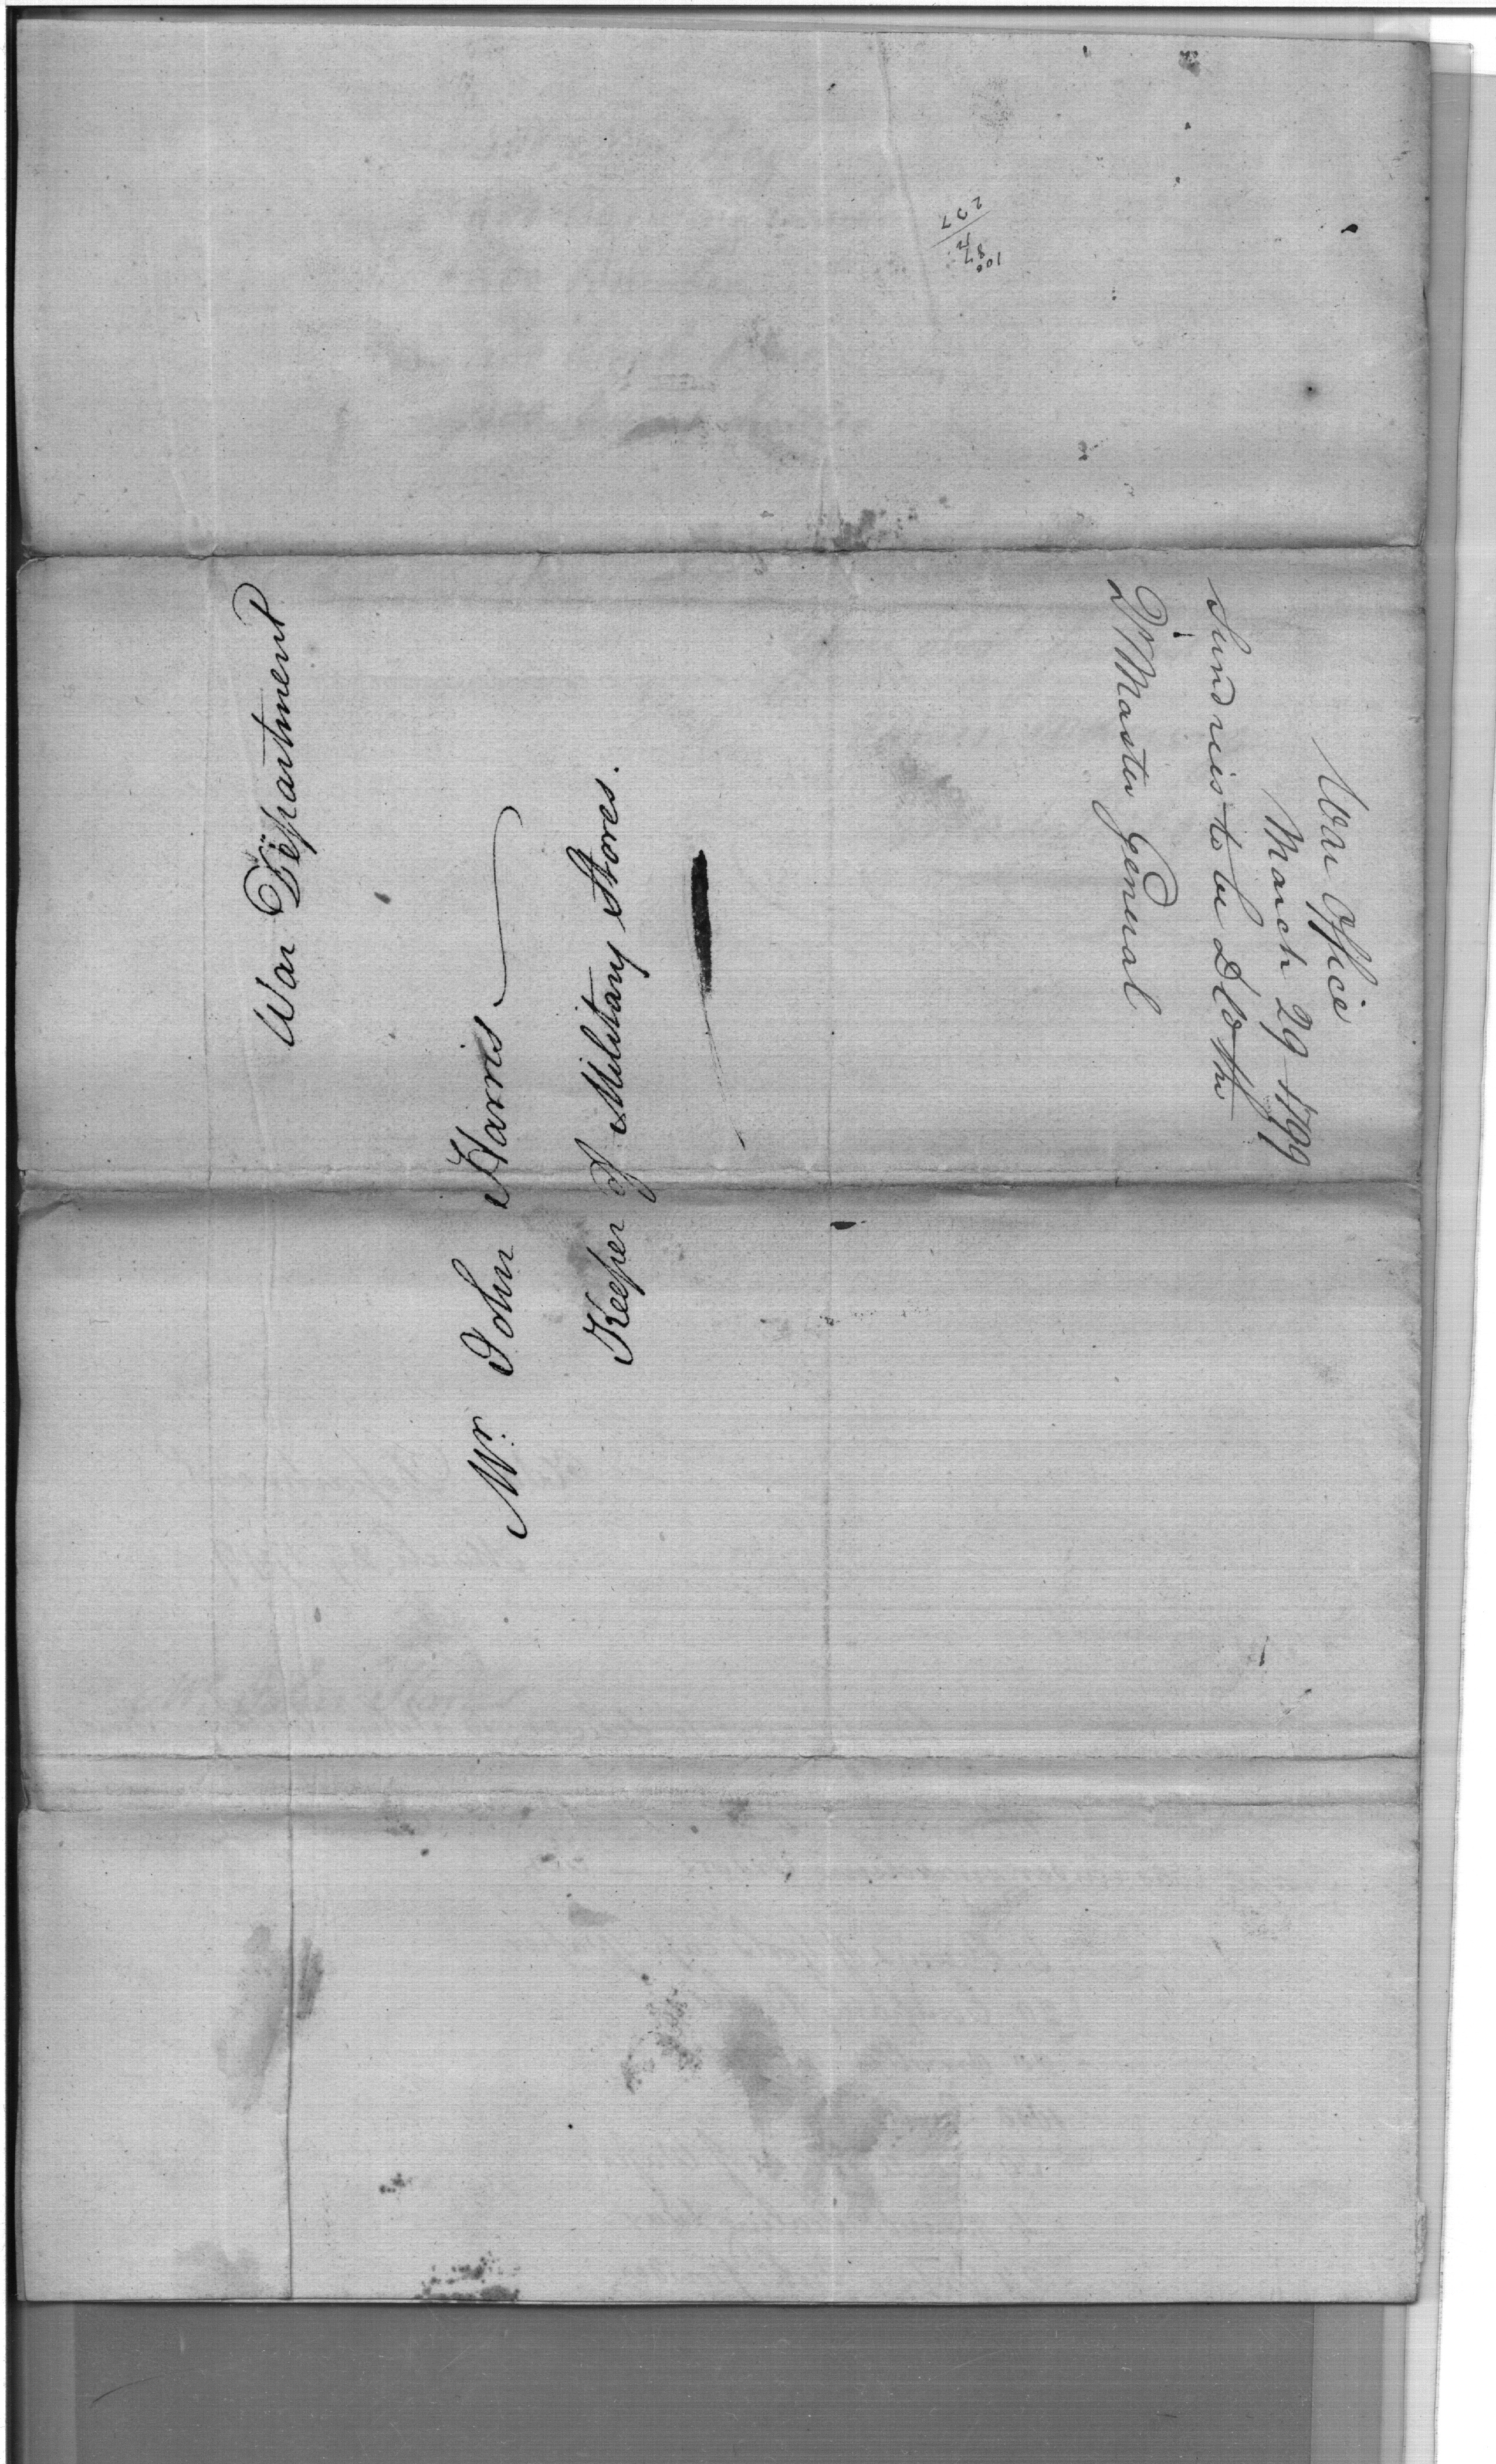 War Department
Mr. John Harris
Keeper of Military Stores.
War Office
March 29 1799
Sundries to be DlD the
Qr Master General